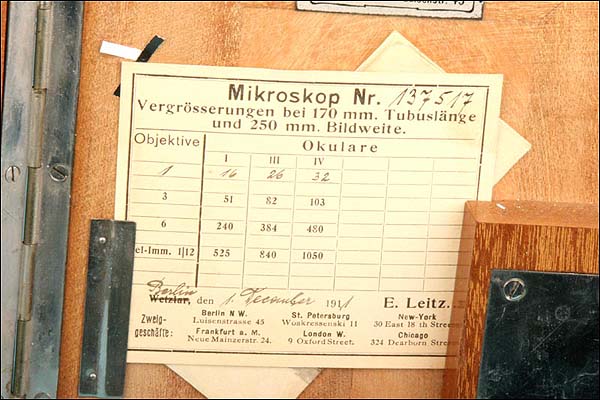 Mikroskop Nr. 137517
Vergrösserungen bei 170 mm. Tubuslänge
und 250 mm. Bildweite.
Objektive Okulare
I III IV
1 16 26 32
3 51 82 103
6 240 384 480
el-Imm. 1|12 525 840 1050
Berlin
Wetzlar, den 1. December 1911 E. Leitz.
Zweig-
geschäfte:
Berlin N W. St. Petersburg New-York
Luisenstrasse 45 Woskressenski 11 30 East 18 th Street
Frankfurt a. M. London W. Chicago
Neue Mainzerstr. 24. 9 Oxford Street. 324 Dearborn Street